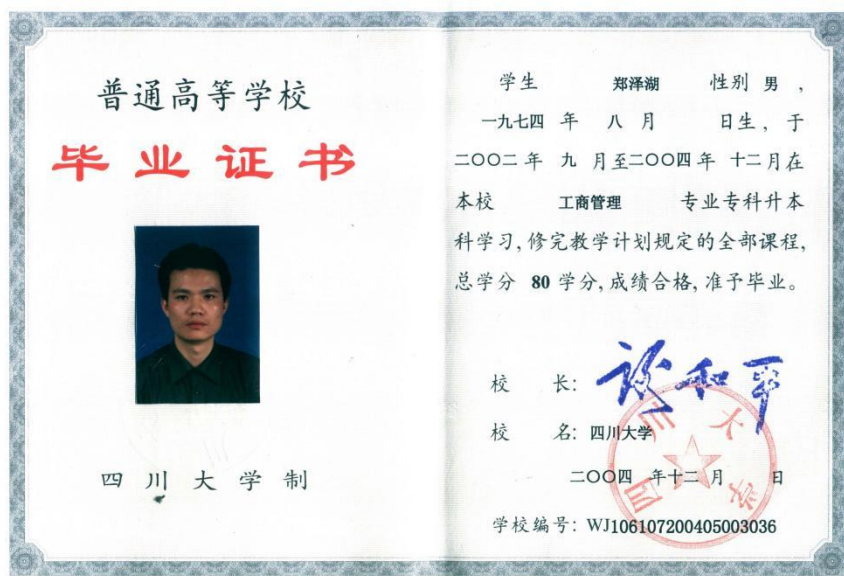 普通高等学校
毕业证书
四川大学制
学生 郑泽湖 性别 男，
一九七四 年 八 月 日生，于
二〇〇二 年 九 月至二〇〇四 年 十二 月在
本校 工商管理 专业专科升本
科学习，修完教学计划规定的全部课程，
总学分 80 学分，成绩合格，准予毕业。
校 长：谢和平
校 名：四川大学
二〇〇四 年十二 月 日
学校编号：WJ106107200405003036
四川大学